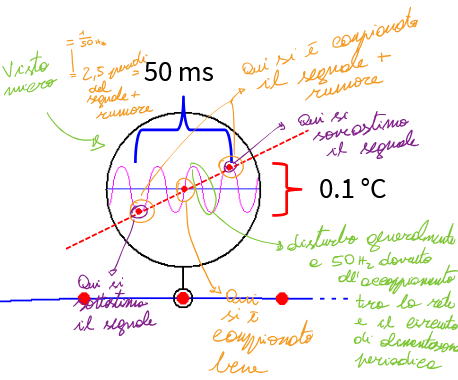 = 1/50 Hz
= 2,5 periodi
del
segnale +
rumore
= 50 ms
Visto
micro
Qui si è campionato
il segnale +
rumore
Qui si
sovrastima
il segnale
0.1 °C
Disturbo generalmente
a 50 Hz dovuto
all'accoppiamento
tra la rete
e il circuito
di alimentazione
periodica
Qui si
sottostima
il segnale
Qui
si è
campionato
bene